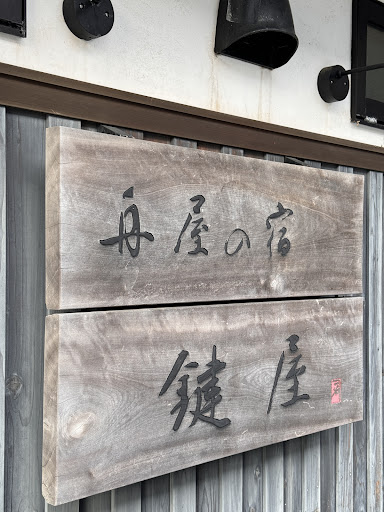 舟屋の宿
鍵屋